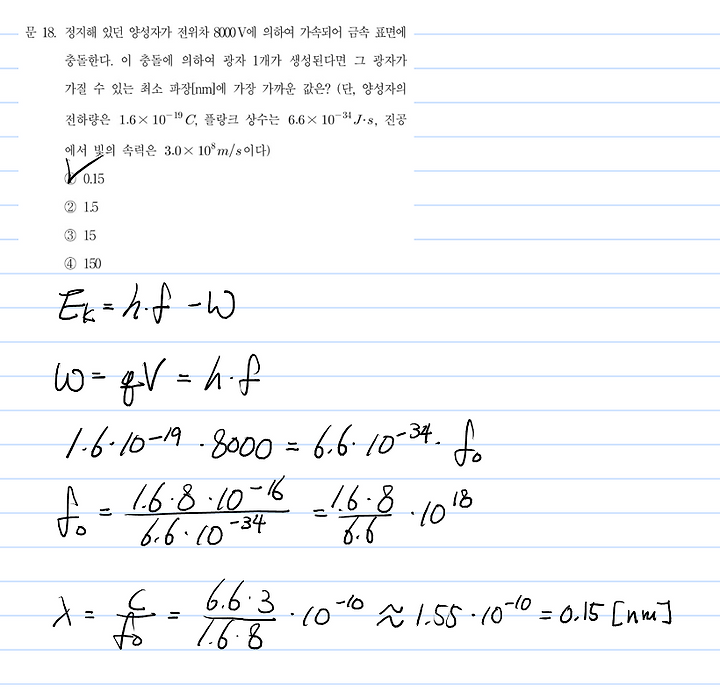 문 18. 정지해 있던 양성자가 전위차 8000 V에 의하여 가속되어 금속 표면에
충돌한다. 이 충돌에 의하여 광자 1개가 생성된다면 그 광자가
가질 수 있는 최소 파장[nm]에 가장 가까운 값은? (단, 양성자의
전하량은 1.6×10⁻¹⁹ C, 플랑크 상수는 6.6×10⁻³⁴ J·s, 진공
에서 빛의 속력은 3.0×10⁸ m/s이다)
① 0.15
② 1.5
③ 15
④ 150
E_k = h·f - W
W = qV = h·f
1.6·10⁻¹⁹ · 8000 = 6.6·10⁻³⁴ · f₀
f₀ = (1.6·8·10⁻¹⁶)/(6.6·10⁻³⁴) = (1.6·8)/6.6 · 10¹⁸
λ = C/f₀ = (6.6·3)/(1.6·8) · 10⁻¹⁰ ≈ 1.55·10⁻¹⁰ = 0.15 [nm]